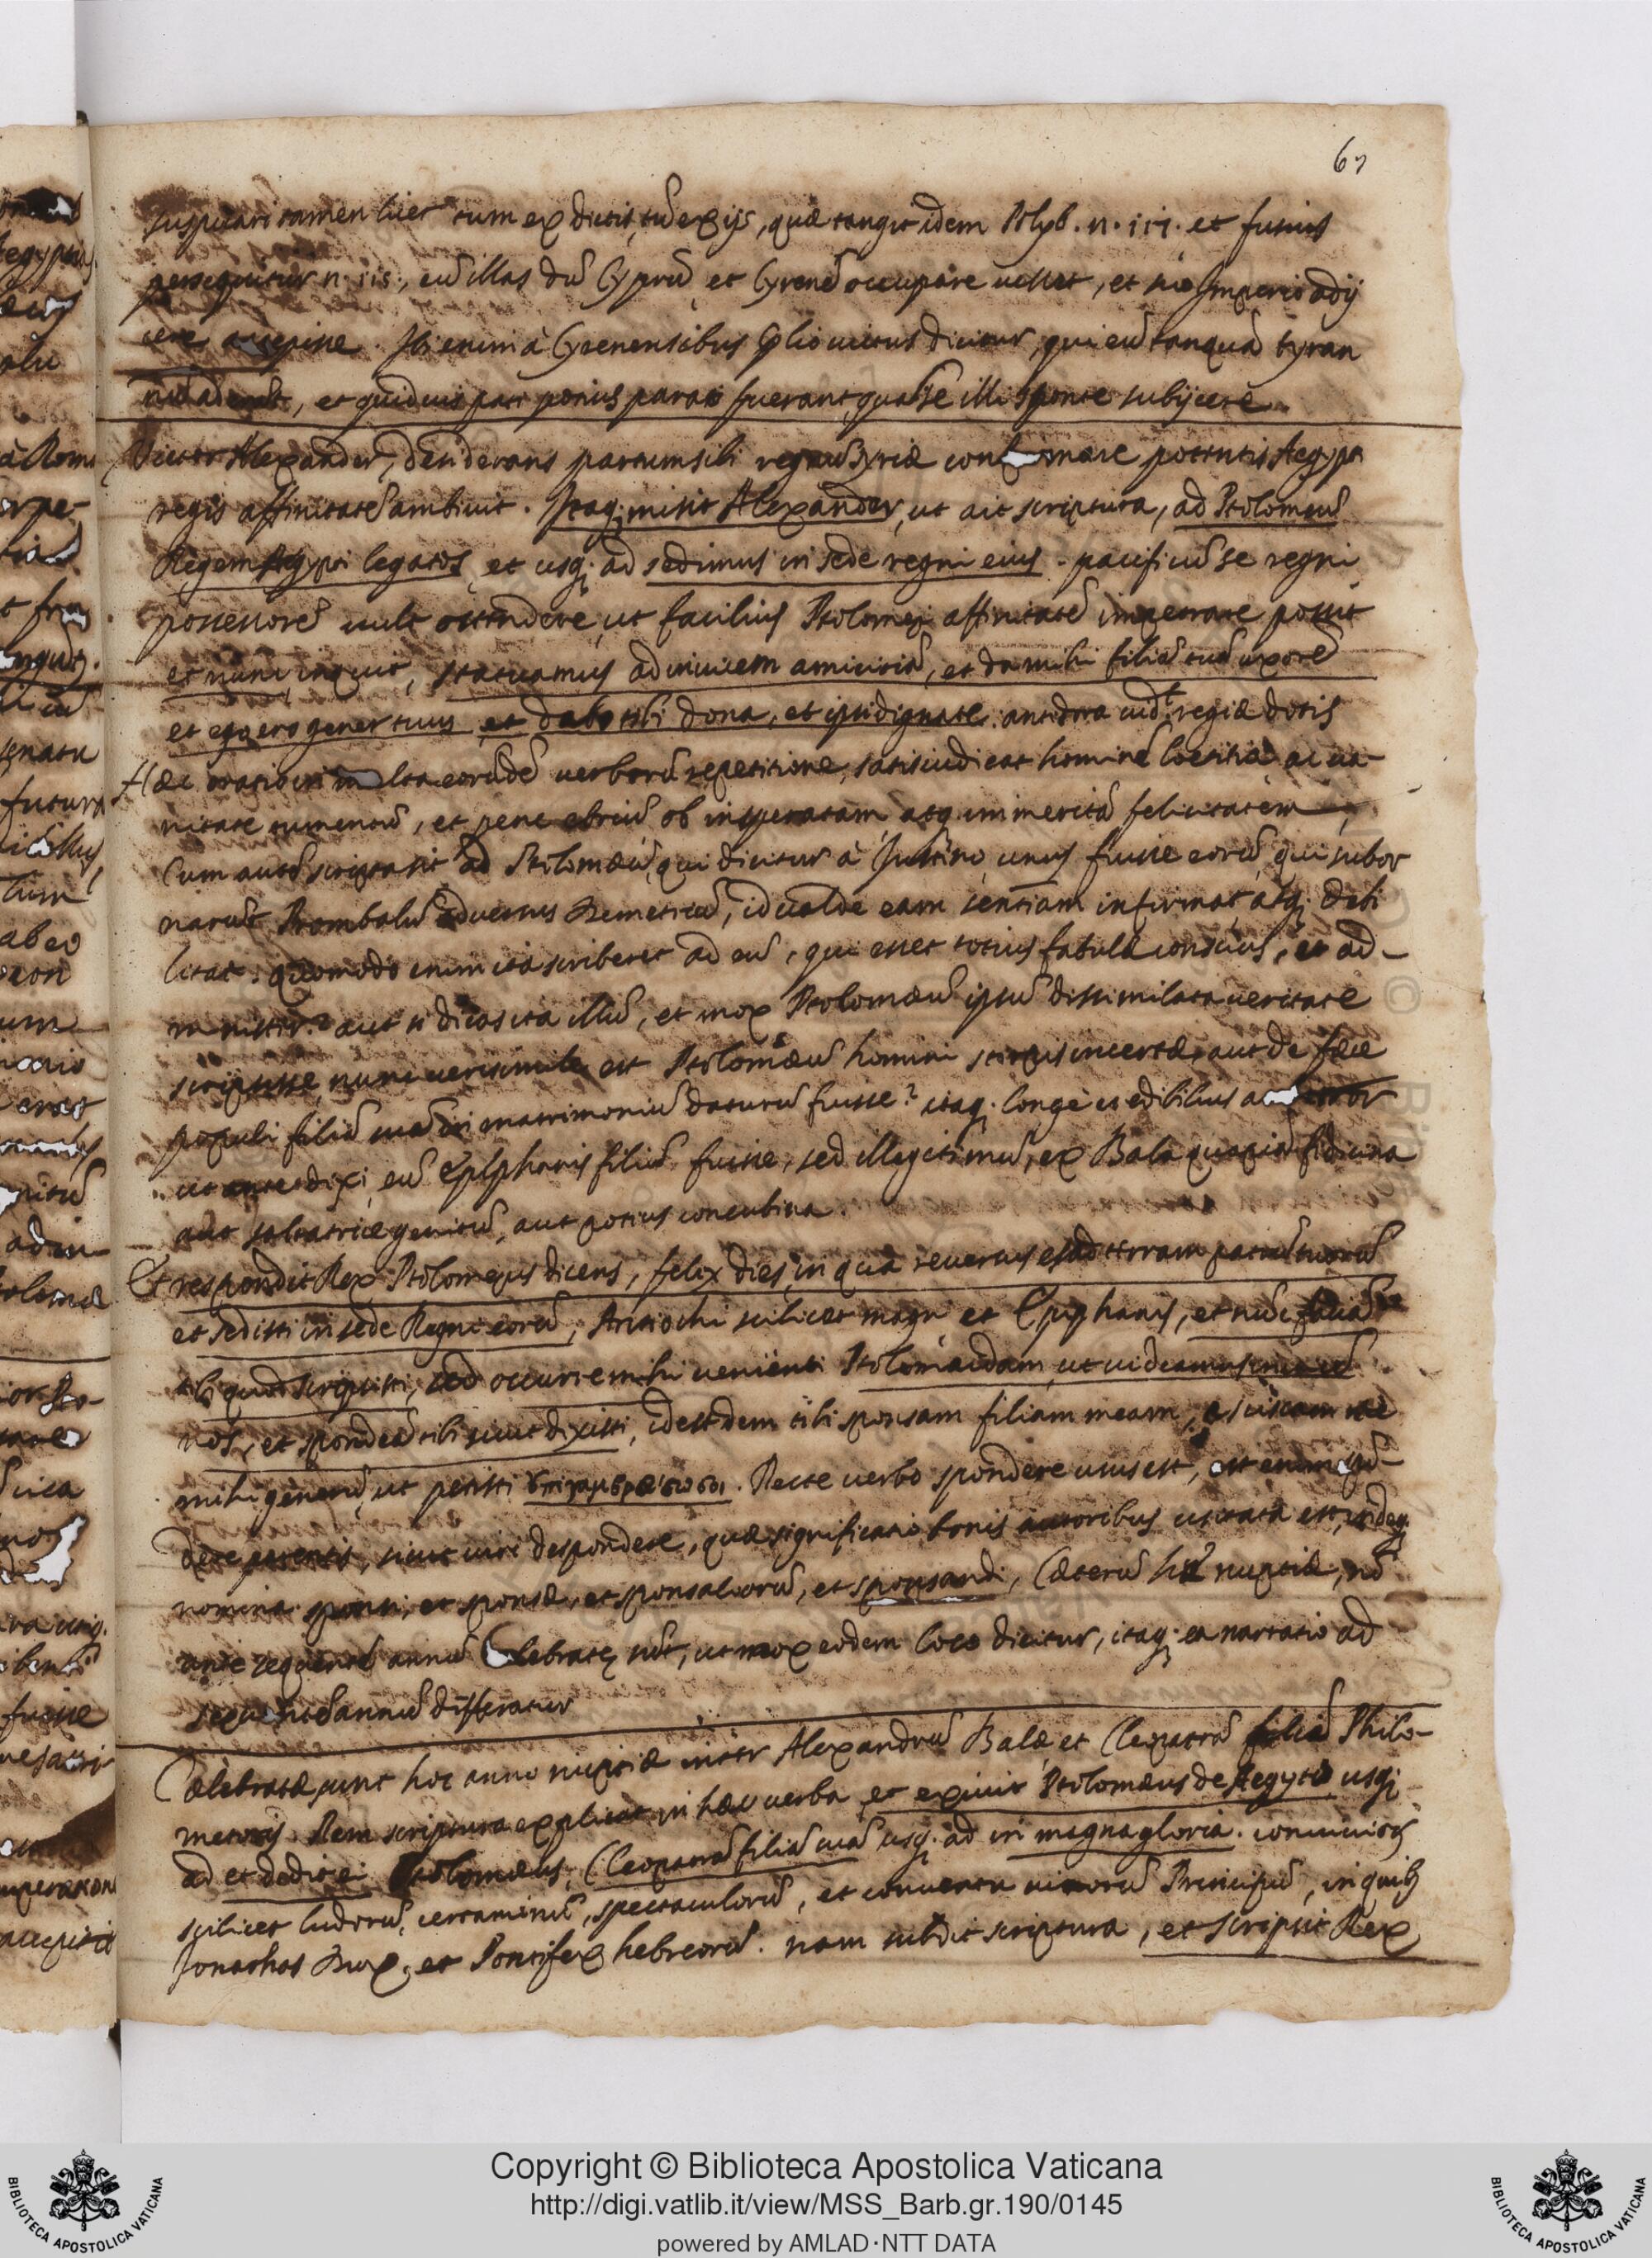 67
suspicari tamen licet tum ex dictis, tũ ex ijs, quæ tangit idem Polyb. n. 111. et fusius
persequitur n. 115., eũ illas dũ Cyprũ et Cyrenẽ occupare uellet, et suo Imperio adij
cere accepisse. Ibi enim à Cyrenensibus prælio uictus dicitur, qui eũ tanquã tyran
nũ, et quiduis pati potius parati fuerant, quã se illi sponte subijcere.
Victor Alexander, desiderans partum sibi regnũ Syriæ confirmare potentis Aegypti
regis affinitatẽ ambiuit. Itaq; misit Alexander, ut ait scriptura, ad Ptolomeũ
Regem Aegypti legatos et usq; ad sedimus in sede regni eius. pacificũ se regni
possessorẽ uult ostendere, ut facilius Ptolomęi affinitatẽ impetrare possit
et nunc, inquit, statuamus ad inuicem amicitiã, et da mihi filiã tuã uxorẽ
et ego ero gener tuus et dabo tibi dona, et ipsi dignitatẽ. regiæ dotis
Hæc oratio in multa eorũdẽ uerborũ repetitione, satis indicat hominẽ lætitia, ac ua-
nitate tumentẽ, et pene ebriũ ob insperatam, atq; immeritã felicitatem
Cum autẽ scripserit ad Ptolomæũ, qui dicitur à Justino unus fuisse eorũ, qui subor
narũt Prombalũ aduersus Demetriũ, id ualde eam sententiam infirmat, atq; debi
litat: quomodo enim ita scriberet ad eũ, qui esset totius fabulæ conscius, et ad-
minister? aut si dicas ita illũ, et mox Ptolomæũ ipsũ dissimilata ueritate
scripsisse, num uerisimile est Ptolomæũ homini stirpis incertæ, aut de fæce
populi filiã suã in matrimoniũ daturũ fuisse? itaq; longè credibilius
ut ante dixi, eũ Epiphanis filiũ fuisse, sed illegitimũ, ex Bala quapiã fidicina
aut saltatrice genitũ, aut potius concubina.
Et respondit Rex Ptolomęus dicens, felix dies, in qua reuersus es ad terram patrũ tuorũ
et sedisti in sede Regni eorũ, Antiochi scilicet magni et Epiphanis, et nũc faciã
tibi quod scripsisti, sed occurre mihi uenienti Ptolomaidam, ut uideamus inuicẽ
nos, et spondeã tibi sicut dixisti, idest dem tibi sponsam filiam meam,
mihi generũ, ut petisti ἐπιγαμβρεύσω σοι. Recte uerbo spondere usus est, est enim spõ-
dere parentis, sicut uiri despondere, quæ significatio bonis auctoribus usitata est, indeq;
nomina sponsi, et sponsæ, et sponsaliorũ, et sponsandi, Cæterũ hæ nuptiæ, nõ
ante sequentẽ annũ celebratę sũt, ut mox eodem loco dicitur, itaq; ea narratio ad
sequentẽ annũ differatur
Cælebratæ sunt hoc anno nuptiæ inter Alexandrũ Balã, et Cleopatrã filiã Philo-
metoris. Rem scriptura explicat in hæc uerba et exiuit Ptolomæus de Aegypto usq;
ad et dedit ei Ptolomæus, Cleopatrã filiã suã usq; ad in magna gloria. conuiuiorũ
scilicet ludorũ, certaminũ, spectaculorũ, et conuentu uirorũ Principũ, in quib;
Jonathas Dux, et Pontifex hebreorũ. nam subdit scriptura, et scripsit Rex
Copyright © Biblioteca Apostolica Vaticana
http://digi.vatlib.it/view/MSS_Barb.gr.190/0145
powered by AMLAD·NTT DATA
BIBLIOTECA APOSTOLICA VATICANA
BIBLIOTECA APOSTOLICA VATICANA